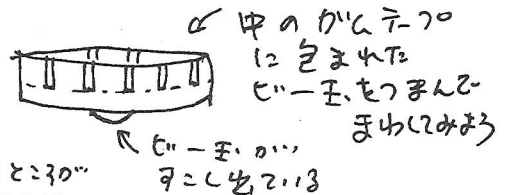 中のガムテープ
に包まれた
ビー玉をつまんで
まわしてみよう
ビー玉が
すこし出ている
ところが